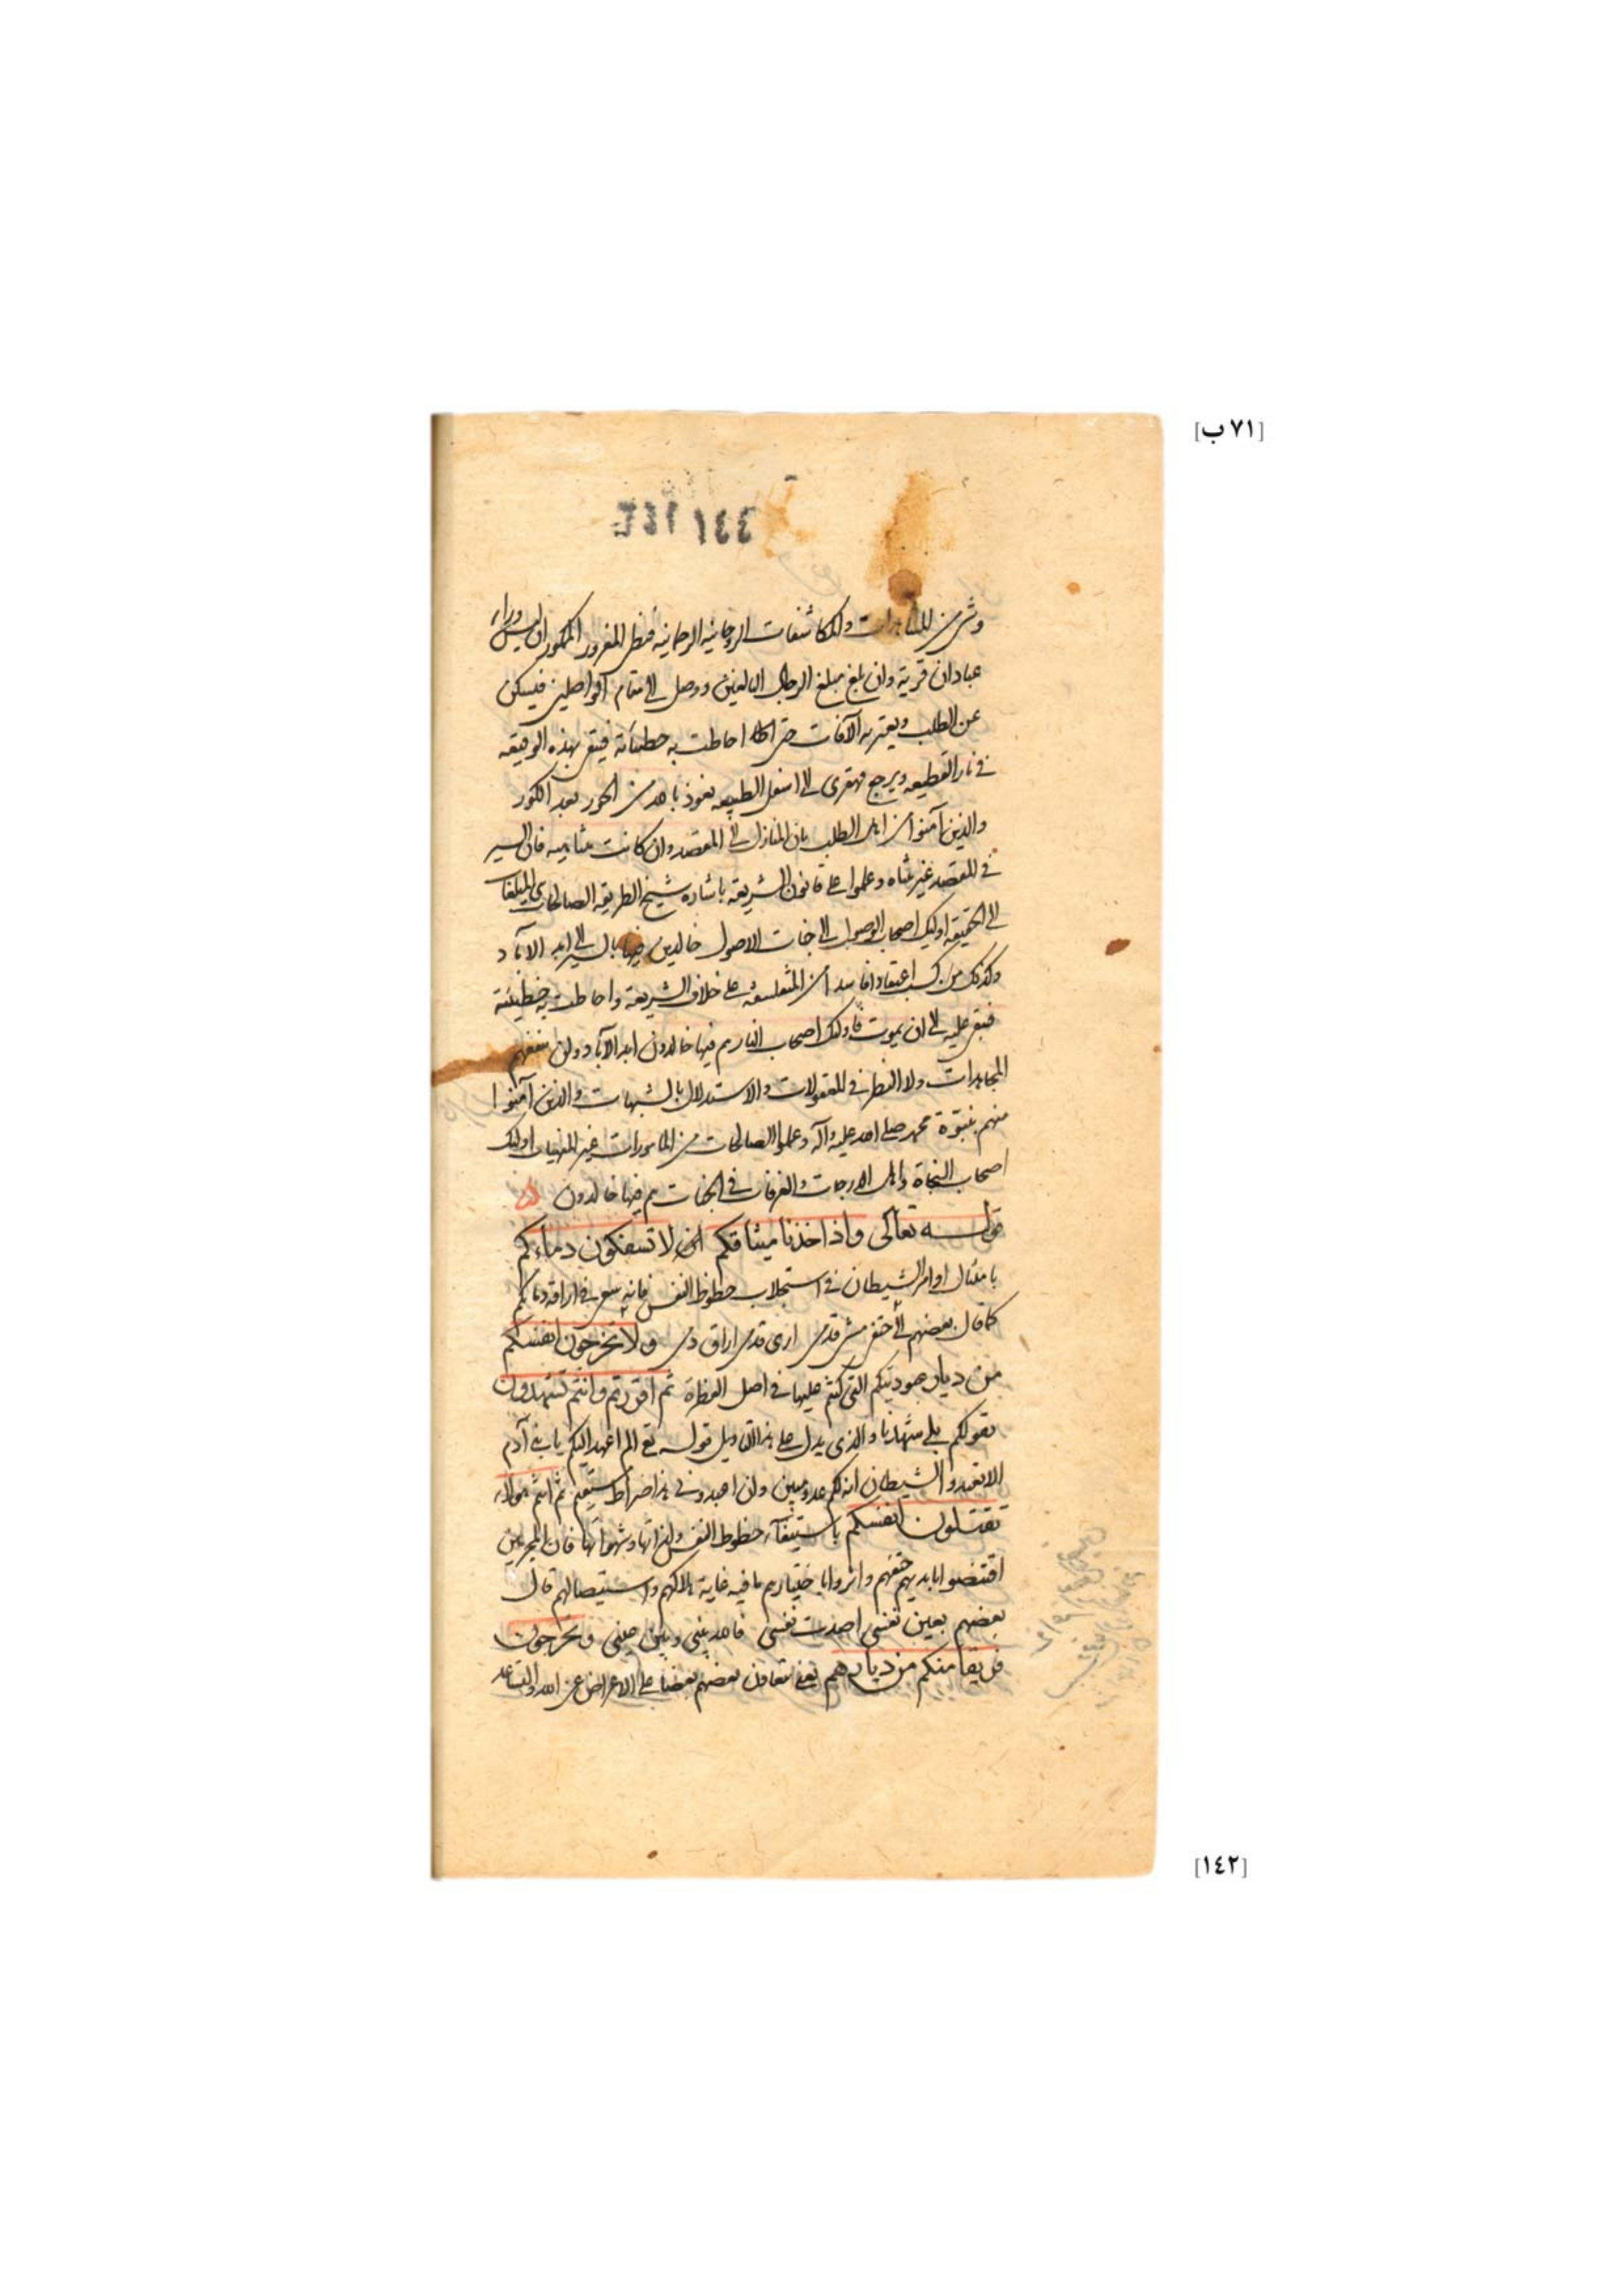 [٧١ ب]
وشرب من المشاهدات والمكاشفات الروحانية الرحمانية فيظن المغرور الممكور ان ليس وراء
عبادان قرية وان بلغ مبلغ الرجال البالغين ووصل الى مقام الواصلين فيسكن
عن الطلب ويعتريه الآفات حتى احاطت به خطيئاته فيبقى بهذه الوقيعه
في نار القطيعه ويرجع قهقرى الى اسفل الطبيعه نعوذ بالله من الحور بعد الكور
والذين آمنوا من اهل الطلب بان المنازل الى المقصد وان كانت متناهيه فان السير
في المقصد غير متناه وعملوا على قانون الشريعه باشاره شيخ الطريقه الصالحات المبلغات
الى الحقيقه اوليك اصحاب الوصول الى جنات الاصول خالدين فيها بالسير الى ابد الآباد
وكذلك من كسب اعتقادا فاسدا من المتفلسفه على خلاف الشريعة واحاطت به خطيئته
فبقى عليه الى ان يموت فاولئك اصحاب النار هم فيها خالدون ابد الآباد ولن ينفعهم
المجاهدات ولا النظر في المعقولات والاستدلال بالشبهات والذين آمنوا
منهم بنبوة محمد صلى الله عليه وآله وعملوا الصالحات من المامورات غير المنهيات اولئك
اصحاب النجاة واهل الدرجات والغرفات في الجنات هم فيها خالدون
قوله تعالى واذ اخذنا ميثاقكم لا تسفكون دماءكم
بامتثال اوامر الشيطان في استجلاب حظوظ النفس فانه يسعى في اراقة دمائكم
كما قال بعضهم الى حتفي مشى قدمي ارى قدمي اراق دمي ولا تخرجون انفسكم
من ديار عبوديتكم التي كنتم عليها في اصل الفطرة ثم اقررتم وانتم تشهدون
بقولكم بلى شهدنا والذي يدل على هذا التاويل قوله تع الم اعهد اليكم يا بني آدم
الا تعبدوا الشيطان انه لكم عدو مبين وان اعبدوني هذا صراط مستقيم ثم انتم هولاء
تقتلون انفسكم باستيفاء حظوظ النفس ولذاتها وشهواتها فان المجرمين
اقتضوا بايديهم حتفهم واثروا باختيارهم ما فيه غاية هلاكهم واستيصالهم قال
بعضهم بعين نفسي اصدت نفسي فالله بيني وبين عيني وتخرجون
فريقا منكم من ديارهم يعني بتعاون بعضهم بعضا على الاعراض عن الله والتباعد
[١٤٢]